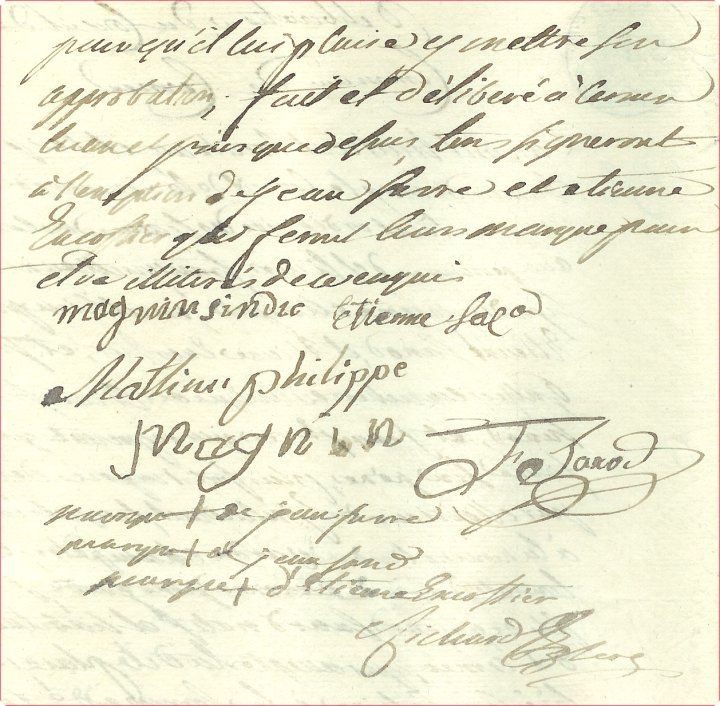 pour qu'il lui plaise y mettre son
approbation, fait et déliberé à
que depuis tous signeront
à l'exception de jean ferre et etienne
Encottier qui feront leurs marque pour
etre illitirés de ce enquis
magnin sindic Etienne
Mathieu philippe
magnin
marque + de jean ferre
marque + de jean
marque + d'etienne Encottier
Richard